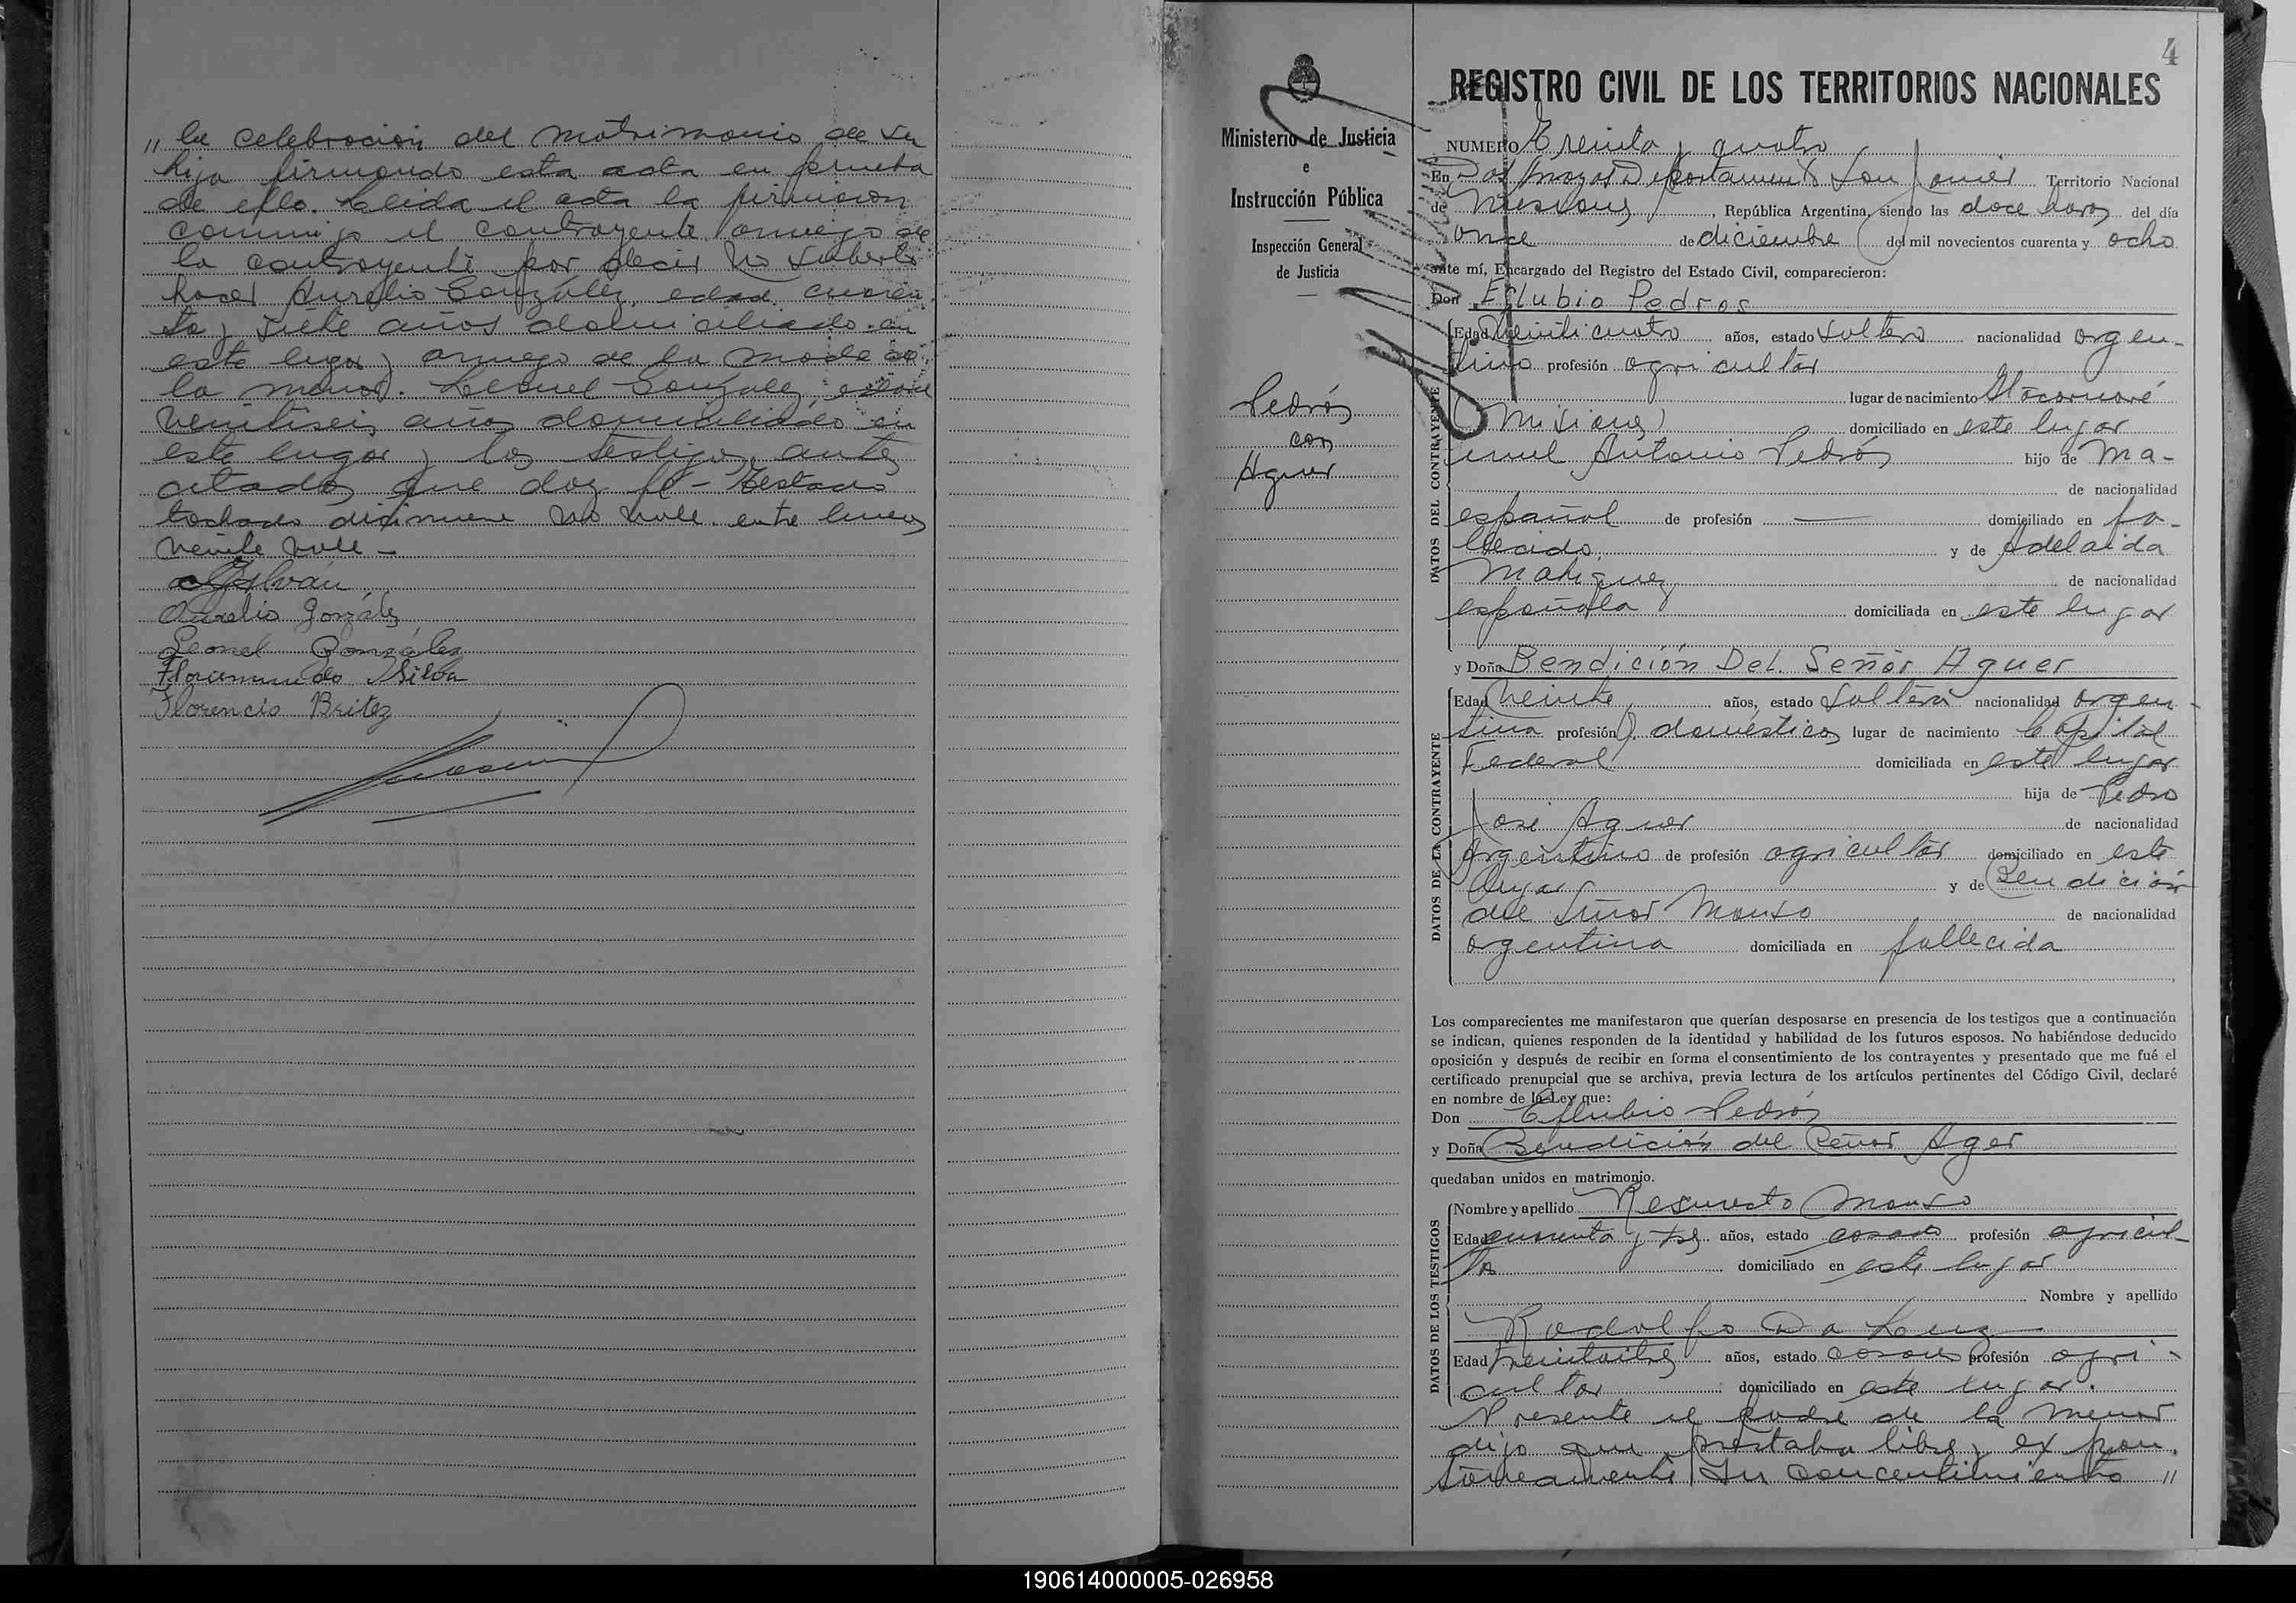 " la celebracion del matrimonio de su
hija firmando esta acta en prueba
de ello. Leida el acta la firmaron
conmigo el contrayente arruego de
la contrayente por decir no saberlo
hacer Aurelio González, edad cuaren
ta y siete años domiciliado en
este lugar y arruego de la madre de
la menor. Leonel González, edad
veintiseis años domiciliado en
este lugar y los testigos antes
citados que doy fe - Testado
tachado no vale. entre lineas
veinte vale -
Aurelio González
Leonel González
Silva
Florencio Britez
4
REGISTRO CIVIL DE LOS TERRITORIOS NACIONALES
Ministerio de Justicia
e
Instrucción Pública
Inspección General
de Justicia
Pedrós
con
Aguer
NUMERO Treinta y quatro
En Dos Arroyos Departamento San Javier Territorio Nacional
de Misiones, República Argentina, siendo las doce horas del día
once de diciembre del mil novecientos cuarenta y ocho
ante mí, Encargado del Registro del Estado Civil, comparecieron:
Don Eflubio Pedros
DATOS DEL CONTRAYENTE
Edad Veinticuatro años, estado soltero nacionalidad argen-
tino profesión agricultor
lugar de nacimiento Mocornaré
(Misiones) domiciliado en este lugar
hijo de Ma-
nuel Antonio Pedrós
de nacionalidad
español de profesión — domiciliado en fa-
llecido y de Adelaida
de nacionalidad
española domiciliada en este lugar
y Doña Bendición Del Señor Aguer
DATOS DE LA CONTRAYENTE
Edad Veinte años, estado soltera nacionalidad argen-
tina profesión Q. domésticos lugar de nacimiento Capital
Federal domiciliada en este lugar
hija de Pedro
José Aguer de nacionalidad
argentino de profesión agricultor domiciliado en este
lugar y de Bendición
del Señor Manso de nacionalidad
argentina domiciliada en fallecida
Los comparecientes me manifestaron que querían desposarse en presencia de los testigos que a continuación
se indican, quienes responden de la identidad y habilidad de los futuros esposos. No habiéndose deducido
oposición y después de recibir en forma el consentimiento de los contrayentes y presentado que me fué el
certificado prenupcial que se archiva, previa lectura de los artículos pertinentes del Código Civil, declaré
en nombre de la Ley que:
Don Eflubio Pedrós
y Doña Bendición del Señor Ager
quedaban unidos en matrimonio.
DATOS DE LOS TESTIGOS
Nombre y apellido Manso
Edad cuarenta y tres años, estado casado profesión agricul-
tor domiciliado en este lugar
Nombre y apellido
Rodolfo Da
Edad treintaitres años, estado casado profesión agri-
cultor domiciliado en este lugar.
Presente el padre de la menor
dijo que prestaba libre y expon
taneamente su concentimiento "
190614000005-026958